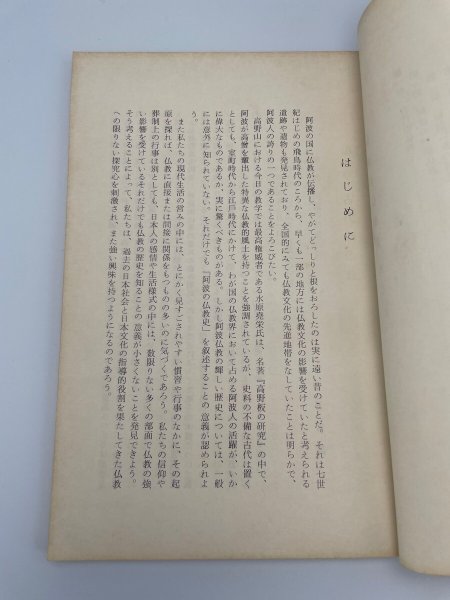 はじめに
阿波の国に仏教が伝播し、やがてどっしりと根をおろしたのは実に遠い昔のことだ。それは七世
紀はじめの飛鳥時代のころから、早くも一部の地方には仏教文化の影響を受けていたと考えられる
遺跡や遺物も発見されており、全国的にみても仏教文化の先進地帯をなしていたことは明らかで、
阿波人の誇りの一つであることをよろこびたい。
高野山における今日の教学では最高権威者である水原堯栄氏は、名著『高野板の研究』の中で、
阿波が高僧を輩出した特異な仏教的風土を持つことを強調されているが、史料の不備な古代は置く
としても、室町時代から江戸時代にかけて、わが国の仏教界において占める阿波人の活躍が、いか
に偉大なものであるか、実に驚くべきものがある。しかし阿波仏教の輝しい歴史については、一般
には意外に知られていない。それだけでも『阿波の仏教史』を叙述することの意義が認められよ
う。
また私たちの現代生活の営みの中には、とにかく見すごされやすい慣習や行事のなかに、その起
原を探れば、仏教に直接または間接に関係をもつものの多いのに気づくであろう。私たちの信仰や
葬制上の行事は別としても、日本人の感情や生活様式の中には、数限りない多くの部面で仏教の強
い影響を受けているそれだけでも仏教の歴史を知ることの意義が小さくないことを発見できよう。
そう考えることによって、私たちは、過去の日本社会と日本文化の指導的役割を果たしてきた仏教
への限りない探究心を刺激され、また強い興味を持つようになるのであろう。